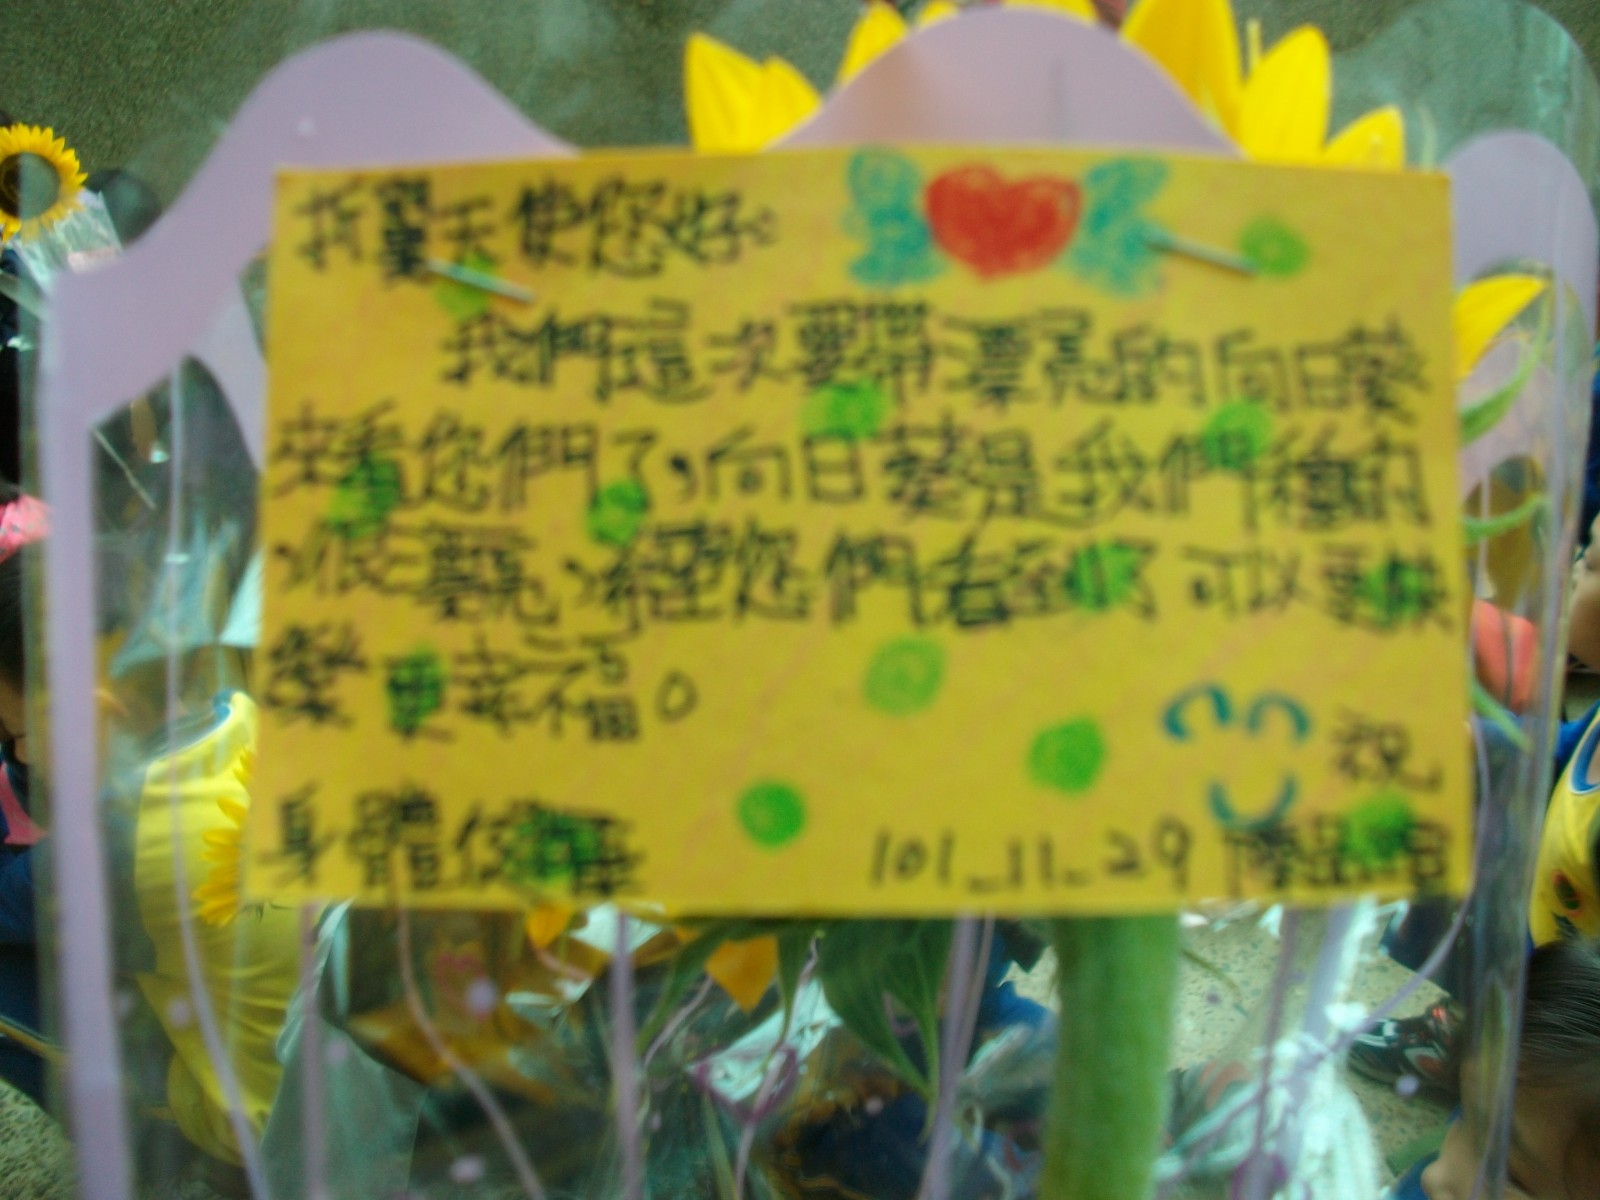 折翼天使您好：
我們這次要帶漂亮的向日葵
來看您們了，向日葵是我們種的
，很漂亮，希望您們看到了可以更快
樂更幸福。
祝
身體健康
101_11_29 陳